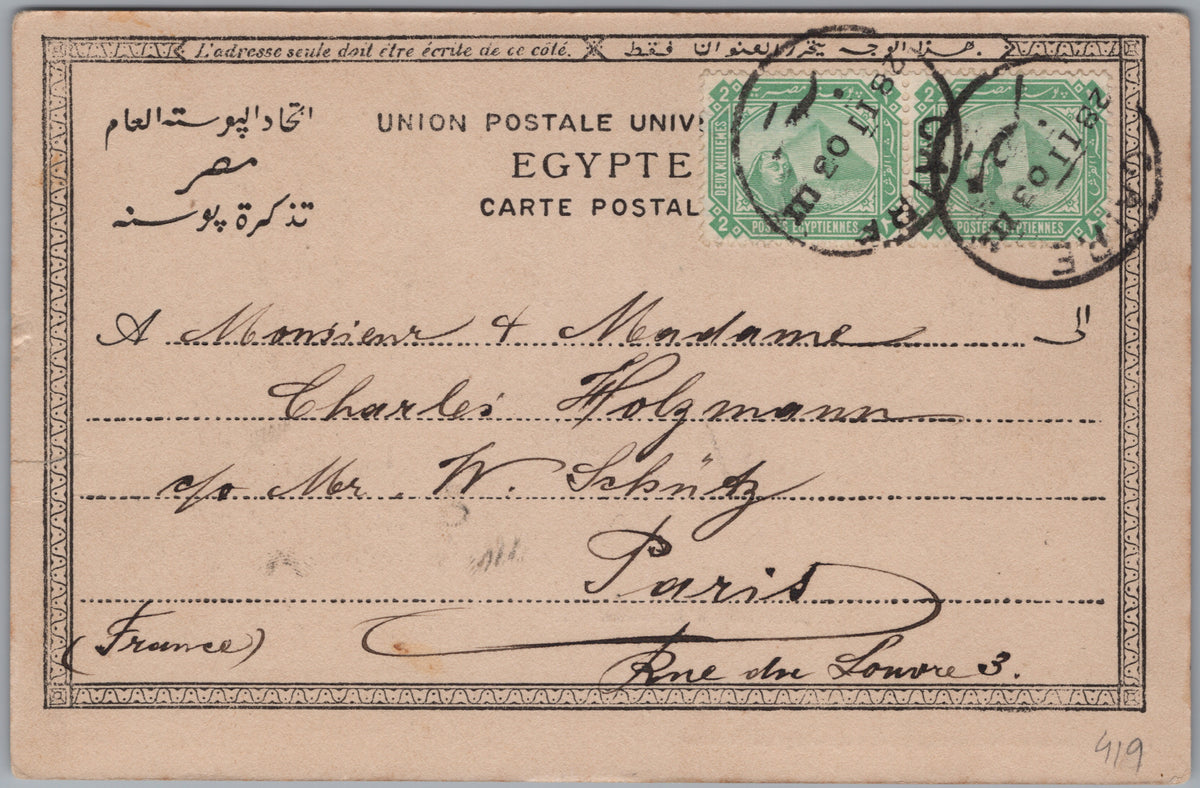 L'adresse seule doit être écrite de ce côté. هذا الوجه يحرر العنوان فقط.
اتحاد البوسته العام
مصر
تذكرة بوسته
UNION POSTALE UNIV
EGYPTE
CARTE POSTAL
2 2
DEUX MILLIEMES
2
POSTES EGYPTIENNES
28 II 03 III
CAIRE
2
POSTES EGYPTIENNES
28 II 03 III
CAIRE
A Monsieur & Madame
Charles Holzmann
c/o Mr. W. Schütz
Paris
(France)
Rue du Louvre 3.
419